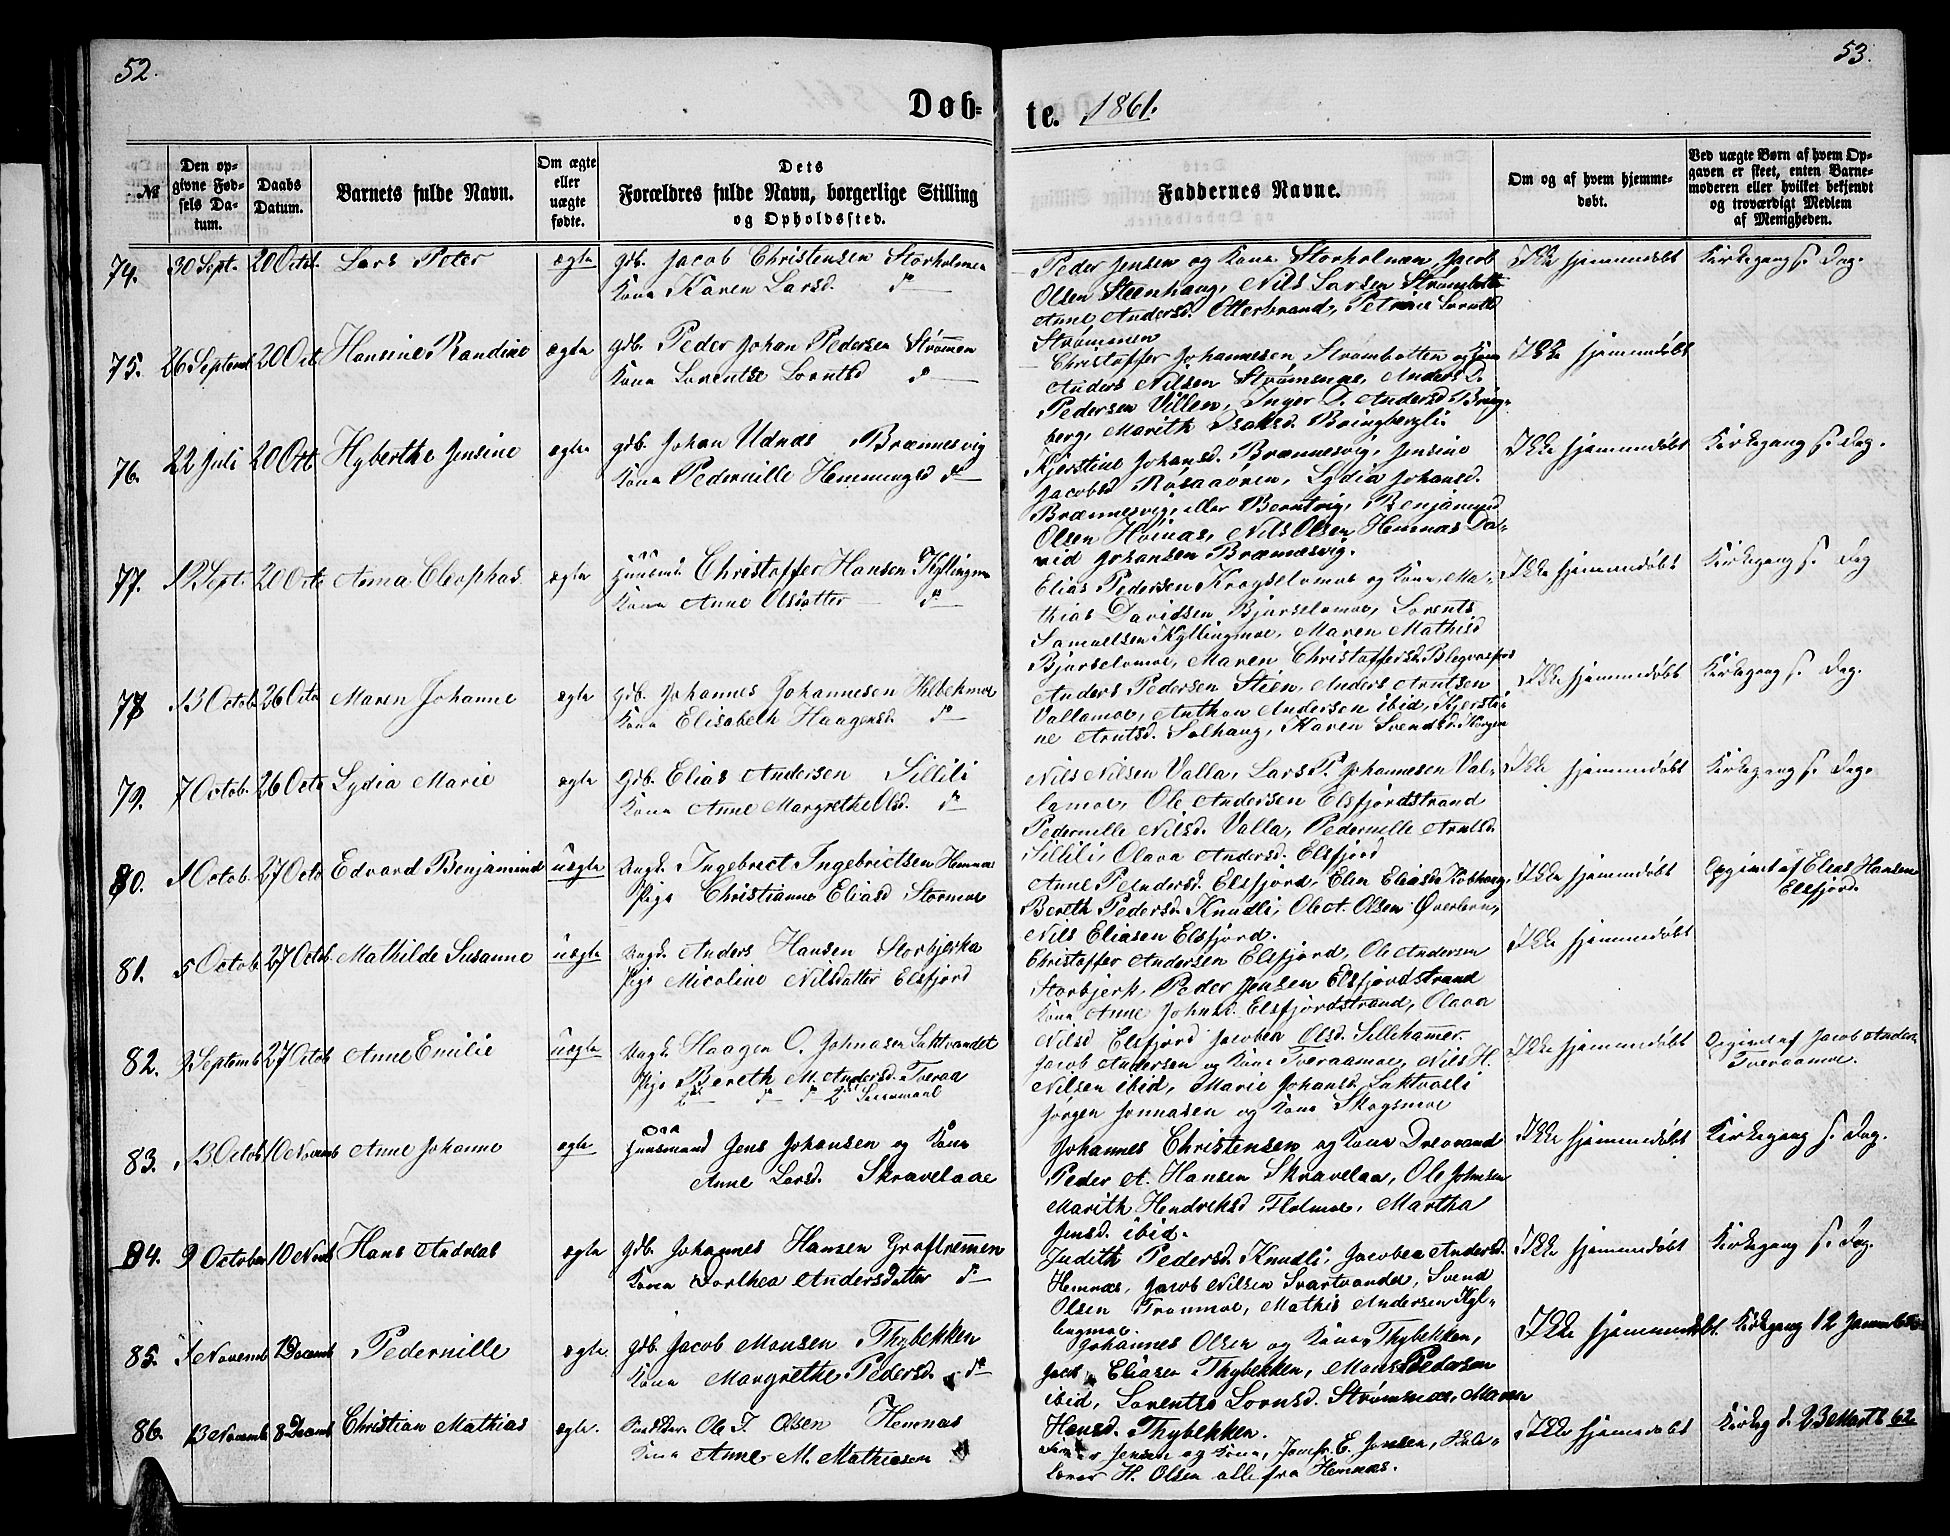 52.
53.
Døb-
te. 1861.
№
Den opgivne Fødsels Datum.
Daabs Datum.
Barnets fulde Navn.
Om ægte eller uægte fødte.
Dets Forældres fulde Navn, borgerlige Stilling og Opholdssted.
Faddernes Navne.
Om og af hvem hjemmedøbt.
Ved uægte Børn af hvem Opgaven er skeet, enten Barnemoderen eller hvilket bekjendt og troværdigt Medlem af Menigheden.
74. 30 Sept. 20 Octob. Lars Peter ægte gdb. Jacob Christensen Storholmen
Kone Karen Larsd. do
Peder Jensen og Kone Storholmen, Jacob
Olsen Steenhaug, Nils Larsen Strømbotten
Anne Andersd. Otterbrand, Petrine Lorntsd
Strømmen
Ikke hjemmedøbt
Kirkegang s. Dag.
75. 26 Septemb 20 Octb Hansine Randine ægte gdb. Peder Johan Pedersen Strømmen
Kone Lorentse Lorntsd do
Christoffer Johannesen Strombotten og Kone
Anders Nilsen Strømsnæs, Anders D.
Pedersen Villen, Inger D. Andersd Bring-
berg, Marith Isaksd. Bringbergli.
Ikke hjemmedøbt
76. 22 Juli 20 Oct. Hyberthe Jensine ægte gdb. Johan Udnæs Brænnesvig
Kone Pedernille Hemmingsd do
Kjerstine Johansd. Brænnesvig, Jensine
Jacobsd Røsaaøren, Lydia Johansd.
Brænnesvig, eller Berntvig, Benjamind
Olsen Høinæs, Nils Olsen Hemnæs Da-
vid Johansen Brænnesvig.
Ikke hjemmedøbt
Kirkegang s. Dag.
77. 12 Sept. 20 Octb Anna Cleophas ægte Huusmd Christoffer Hansen Kyllingmo
Kone Anne Olsdatter do
Elias Pedersen Krogselomoe og Kone, Ma-
thias Davidsen Bjurselomoe, Lorents
Samuelsen Kyllingmoe, Maren Mathisd
Bjurselomoe, Maren Christoffersd.
Ikke hjemmedøbt
Kirkegang s. Dag
78 13 Octob 26 Octb Maren Johanne ægte gdb. Johannes Johannesen Hilbekmoe
Kone Elisabeth Haagensd. do
Anders Pedersen Stien, Anders Arntsen
Vallamoe, Anthon Andersen ibid, Kjersti-
ne Arntsd. Solhaug, Karen Svendsd. Korgen
Ikke hjemmedøbt
Kirkegang s. Dag.
79. 7 Octob. 26 Octb Lydia Marie ægte gdb. Elias Andersen Sillili
Kone Anne Margrethe Olsd. do
Nils Nilsen Valla, Lars P. Johannesen Val-
lamoe, Ole Andersen Elsfjordstrand
Pedernille Nilsd. Valla, Pedernille Arntsd.
Sillili, Olava Andersd. Elsfjord
Ikke hjemmedøbt
Kirkegang s. Dag.
80. 1 Octob. 27 Octb Edvard Benjamind uægte Ungk. Ingebrect Ingebrictsen Hemnæs
Pige Christianne Eliasd Stormoe
Anne P. Andersd. Elsfjord, Elen Eliasd
Bereth Pedersd. Knudli, Ole A. Olsen Øverleren,
Nils Eliasen Elsfjord.
Ikke hjemmedøbt
Opgivet af Elias Hansen
Elsfjord.
81. 5 Octob 27 Octb. Mathilde Susanne uægte Ungk. Anders Hansen Storbjerka
Pige Nicoline Nilsdatter Elsfjord
Christoffer Andersen Elsfjord, Ole Andersen
Storbjerk. Peder Jensen Elsfjordstrand
Kone Anne Johnsd. Elsfjordstrand, Olava
Nilsd Elsfjord Jacobea Olsd. Sillehammer.
Ikke hjemmedøbt
82. 2 Septemb 27 Octob Anne Emilie uægte Ungk. Haagen O. Johnasen Luktvandet
Pige Bereth M. Andersd. Tveraa
Jacob Andersen og Kone Tveraamoe, Nils H.
Nilsen ibid, Marie Johansd. Luktvasli
Jørgen Jonnasen og Kone Skogsmoe
Ikke hjemmedøbt
Opgivet af Jacob Anders.
Tveraamoe.
83. 13 Octob 10 Novemb Anne Johanne ægte Huusmand Jens Johansen og Kone
Anne Larsd. Skravelaae
Johannes Christensen og Kone Drevvand
Peder A. Hansen Skravelaa, Ole Johnsen
Marith Hendriksd Holmoe, Martha
Jensd. ibid.
Ikke hjemmedøbt
Kirkegang s. Dag.
84. 9 October 10 Novb Hans Andreas ægte gdb. Johannes Hansen Groftremmen
Kone Dorthea Andersdatter do
Judith Pedersd. Knudli, Jacobea Andersd.
Hemnæs, Jacob Nilsen Svartvande, Svend
Olsen Tronmoe, Mathis Andersen Kyl-
lingmoe.
Ikke hjemmedøbt
Kirkegang s. Dag.
85. 1 Novemb 1 Decemb Pedernille ægte gdb. Jacob Monsen Thybekken
Kone Margrethe Pedersd. do
Johannes Olsen og Kone Thybekken,
Jacob Eliasen Thybekken, Mons Pedersen
ibid, Lorentse Lornsd. Strømsnæs, Maren
Hansd. Thybekken.
Ikke hjemmedøbt.
Kirkegang 12 Januar
86. 13 Novemb 8 Decemb Christian Mathias ægte. Ole T. Olsen Hemnæs
Kone Anne M. Mathiasen
Jensen og Kone, Jomfr. E. Jensen,
H. Olsen alle fra Hemnæs.
Ikke hjemmedøbt
Kirkeg d. 23 Marts 62.